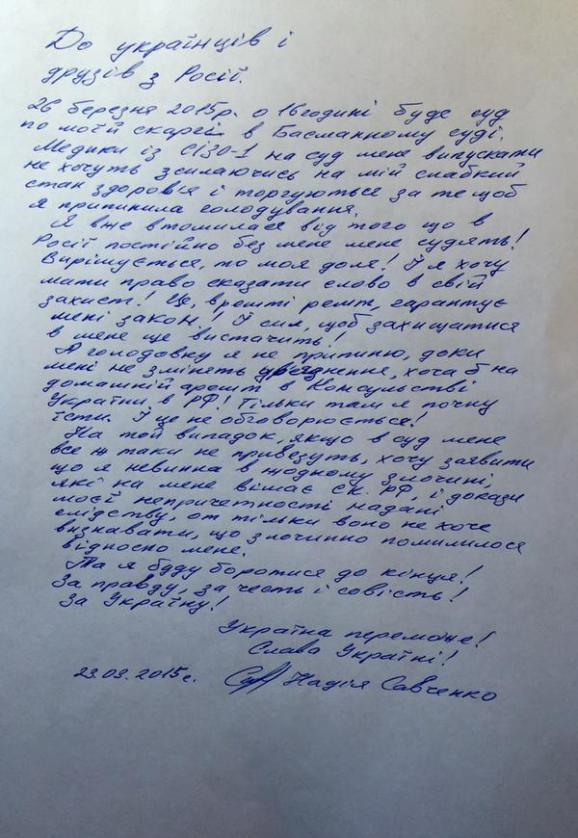 До українців і
друзів з Росії.
26 березня 2015р. о 16 годині буде суд
по моїй скаргі в Басманному суді.
Медики із СІЗО-1 на суд мене випускати
не хочуть зсилаючись на мій слабкий
стан здоров'я і торгуються за те щоб
я припинила голодування.
Я вже втомилася від того що в
Росії постійно без мене мене судять!
Вирішується, то моя доля! Й я хочу
мати право сказати слово в свій
захист! Це, врешті решт, гарантує
мені закон! Й сил, щоб захищатися
в мене ще вистачить!
А голодовку я не припиню, доки
мені не змінять ув'язнення, хоча б на
домашній арешт в Консульстві
України в РФ! Тільки там я почну
їсти. І це не обговорюється!
На той випадок, якщо в суд мене
все ж таки не привезуть, хочу заявити
що я невинна в жодному злочині,
які на мене вішає СК. РФ, і докази
моєї непричетності надані
слідству, от тільки воно не хоче
визнавати, що злочинно помилилося
відносно мене.
Та я буду боротися до кінця!
За правду, за честь і совість!
За Україну!
Україна переможе!
Слава Україні!
23.03.2015р. Надія Савченко